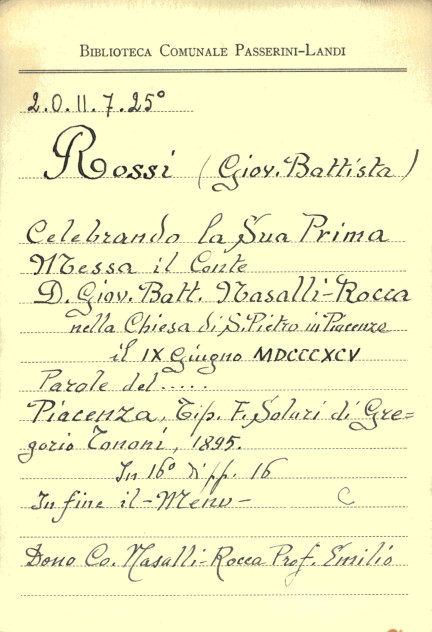 BIBLIOTECA COMUNALE PASSERINI-LANDI
2.O.II.7.25°
Rossi (Giov. Battista)
Celebrando la Sua Prima
Messa il Conte
D. Giov. Batt. Nasalli-Rocca
nella Chiesa di S. Pietro in Piacenza
il IX Giugno MDCCCXCV
Parole del.....
Piacenza, Tip. F. Solari di Gre=
gorio Tononi, 1895.
In 16° di pp. 16
In fine il - Menu - C
Dono Co. Nasalli-Rocca Prof. Emilio